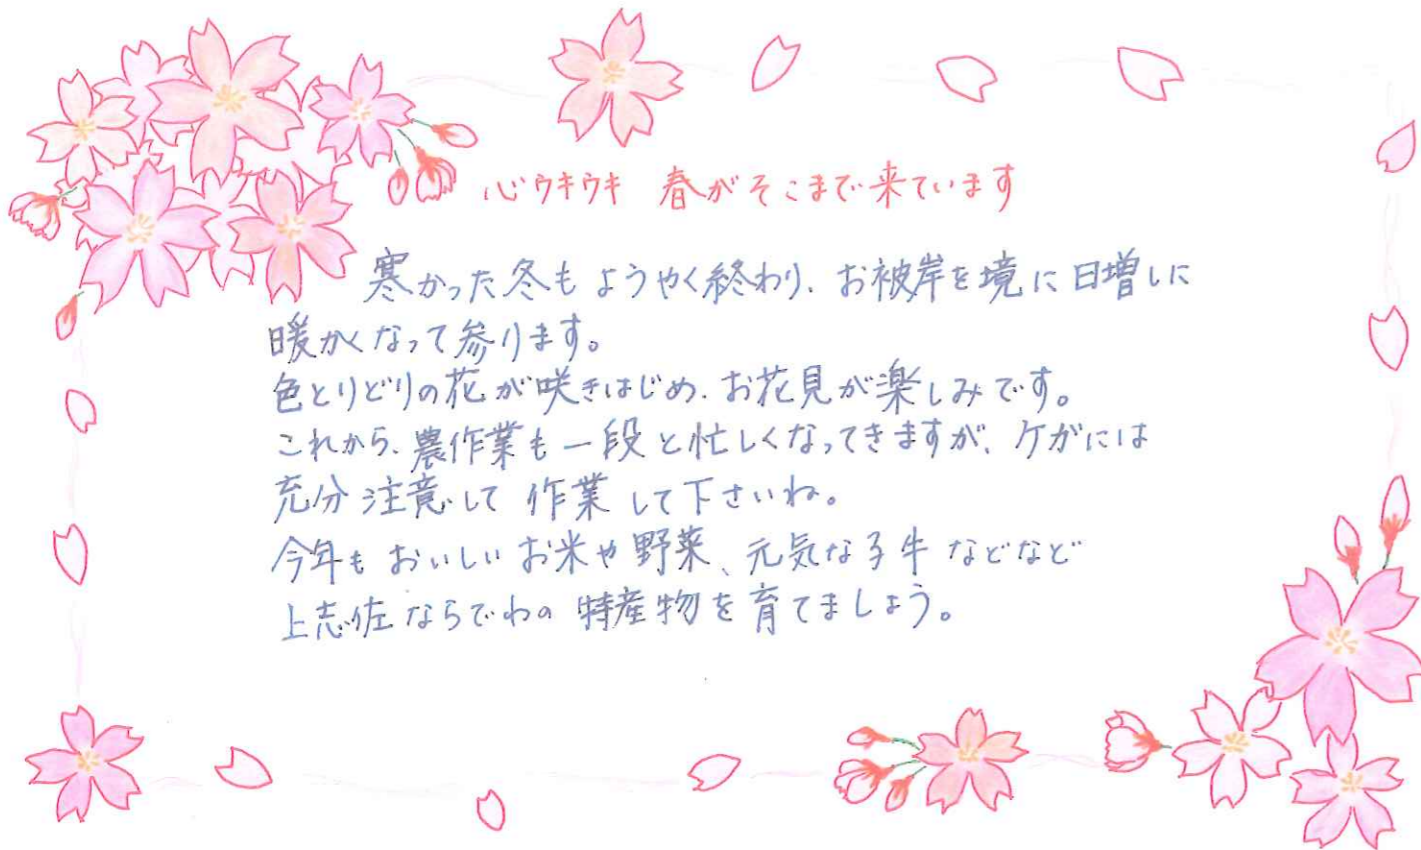 心ウキウキ 春がそこまで来ています
寒かった冬もようやく終わり、お彼岸を境に日増しに
暖かくなって参ります。
色とりどりの花が咲きはじめ、お花見が楽しみです。
これから、農作業も一段と忙しくなってきますが、ケガには
充分注意して作業して下さいね。
今年もおいしいお米や野菜、元気な子牛などなど
上志佐ならでわの特産物を育てましょう。